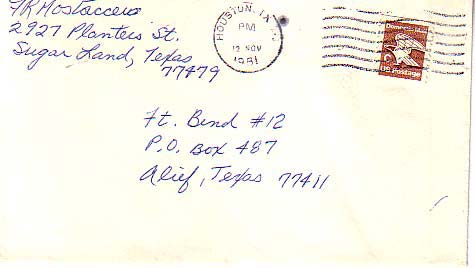 FRMostaccero
2927 Planters St.
Sugar Land, Texas
77479
HOUSTON, TX
PM
12 NOV
1981
Domestic Mail
C
US Postage
Ft. Bend #12
P.O. Box 487
Alief, Texas 77411